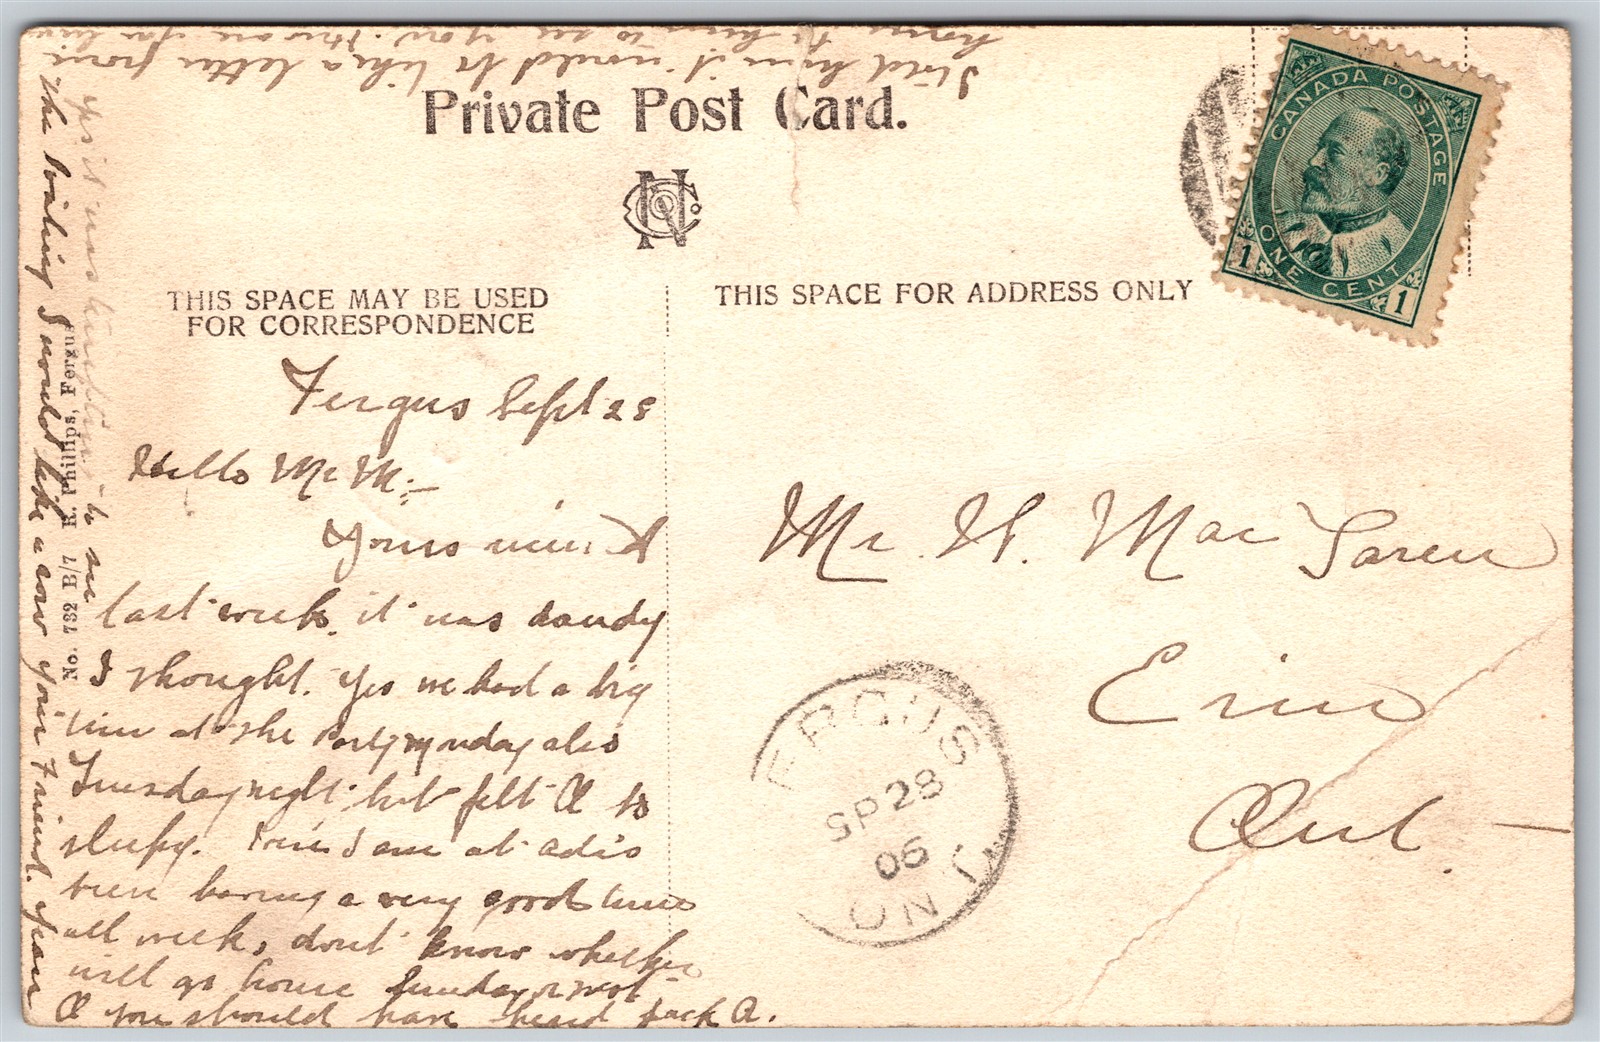 Private Post Card.
NCo
CANADA POSTAGE
ONE CENT
1 1
THIS SPACE MAY BE USED
FOR CORRESPONDENCE
THIS SPACE FOR ADDRESS ONLY
Fergus Sept 28
Hello Mr M:-
Yours
last week. it was dandy
I thought. Yes we had a big
time at the Party also
Tuesday night, but felt O so
sleepy. I am at
been having a very good time
all week, dont know whether
will go home Sunday or not
O you should have heard Jack A.
Mr. H. Mac Laren
Erin
Ont.
FERGUS
SP 28
06
ONT
No. 732 B 7/ R. Phillips, Fergus
the writing I would like a card your Friend.
I told him it would be like a letter from
home to him to see you.